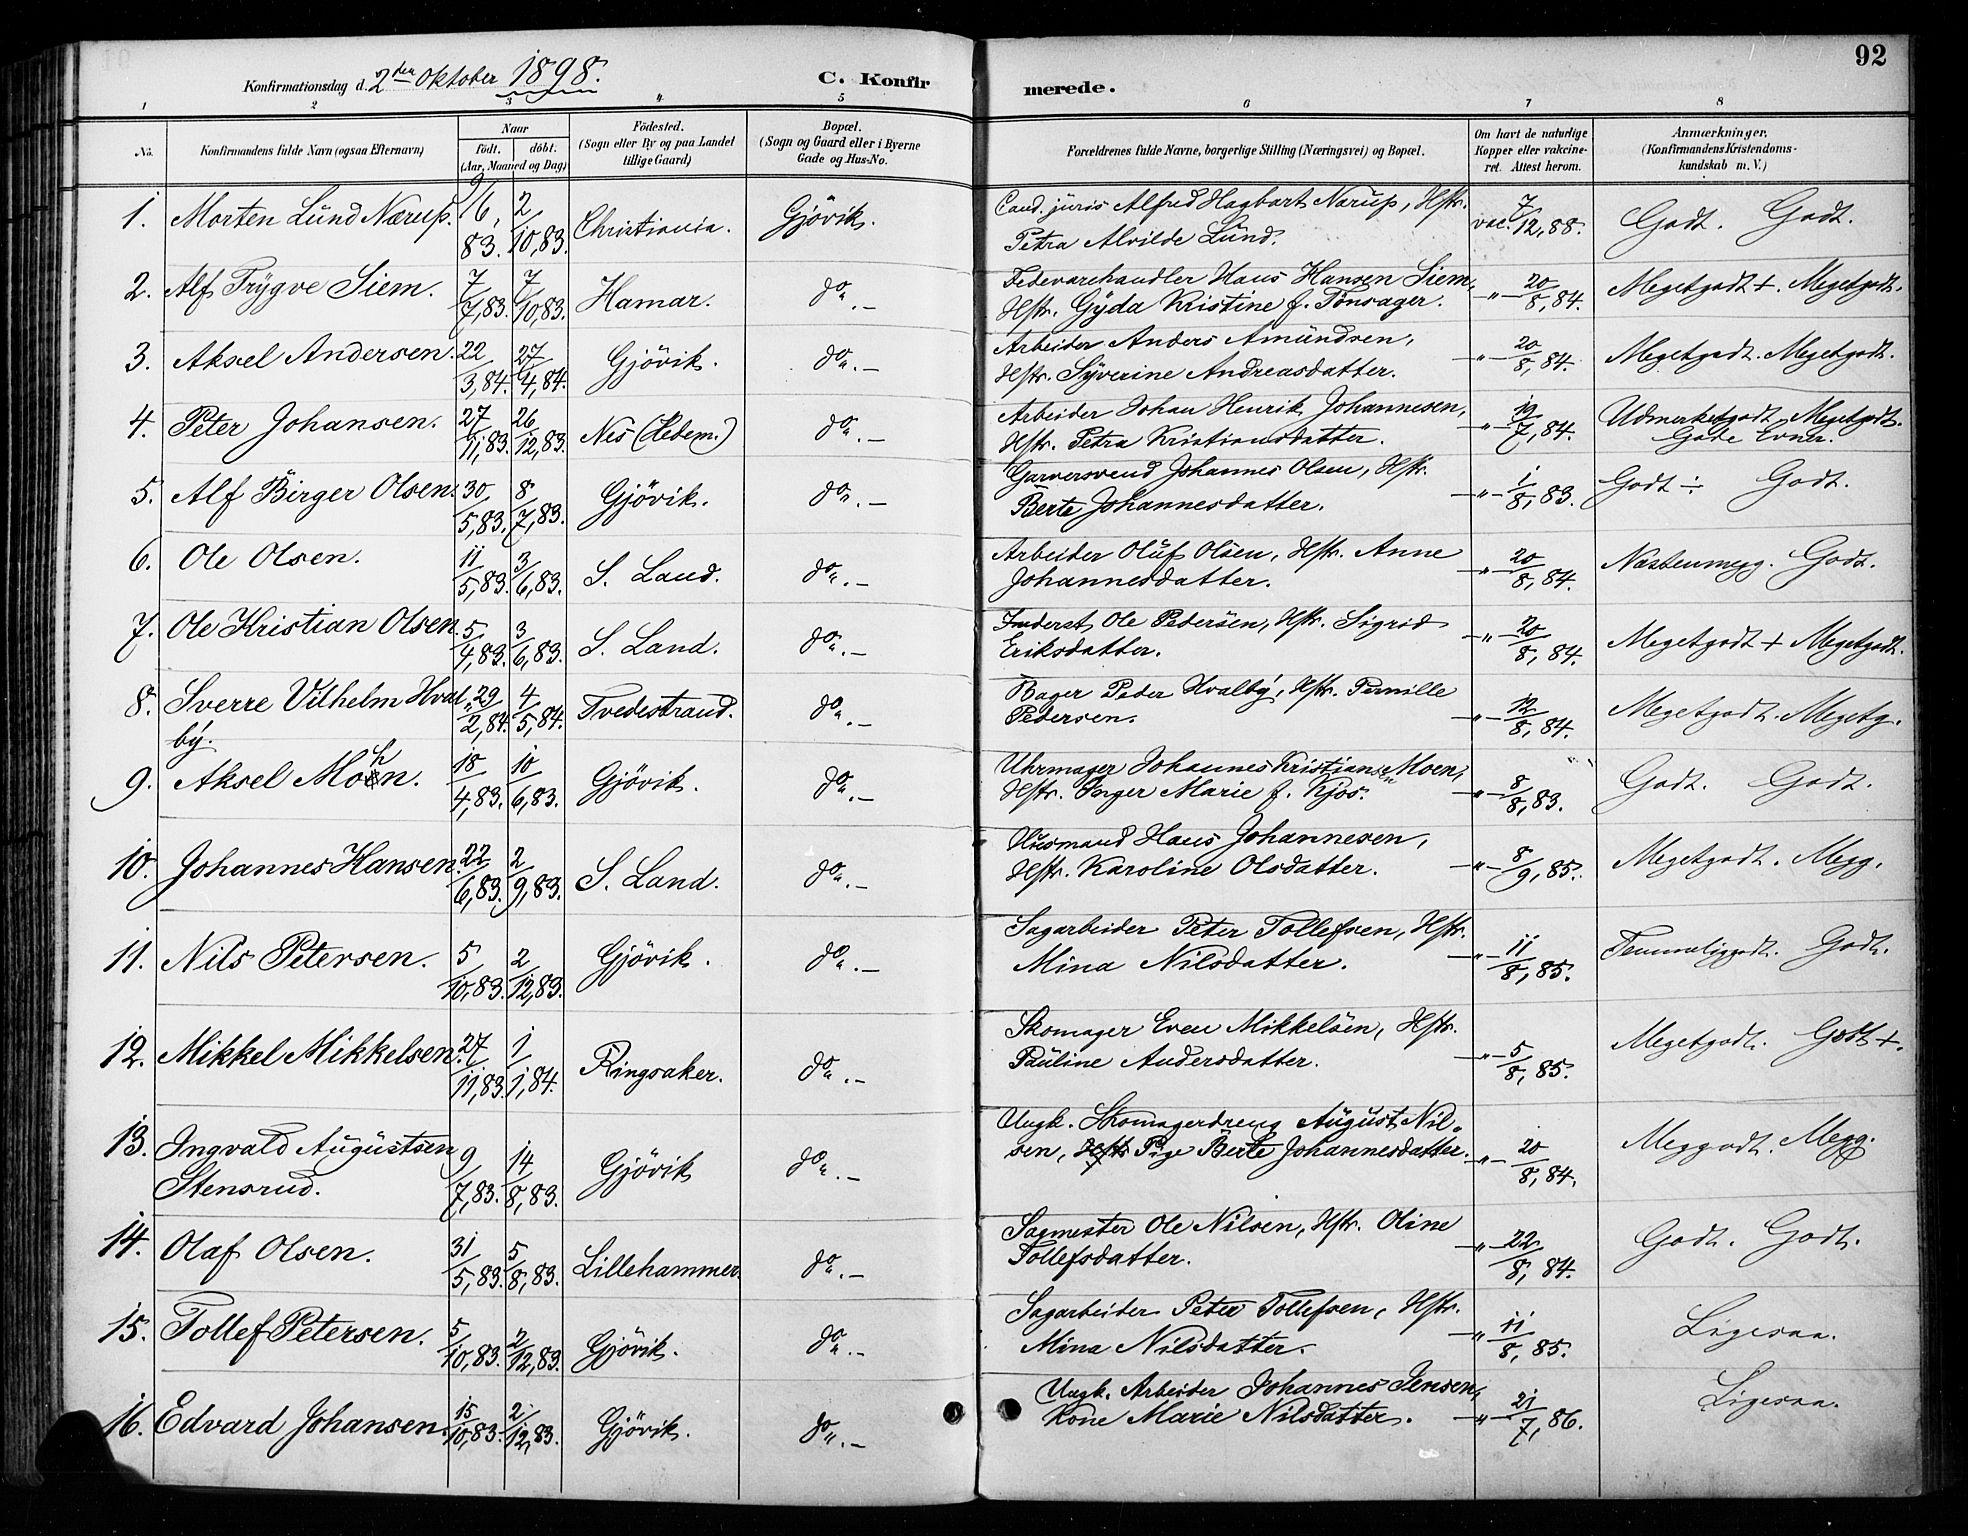 92
Konfirmationsdag d. 2den Oktober 1898. C. Konfirmerede.
1 2 3 4 5 6 7 8
No. Konfirmandens fulde Navn (ogsaa Efternavn) Naar født. døbt. (Aar, Maaned og Dag) Fødested. (Sogn eller By og paa Landet tillige Gaard) Bopæl. (Sogn og Gaard eller i Byerne Gade og Hus-No. Forældrenes fulde Navne, borgerlige Stilling (Næringsvei) og Bopæl. Om havt de naturlige Kopper eller vakcineret. Attest herom. Anmærkninger. (Konfirmandens Kristendomskundskab m. V.)
1. Morten Lünd Nærup. 16/9, 83. 2/10,83. Christiania. Gjövik. Cand. juris Alfred Hagbart Nærup, Hstr. Petra Alvilde Lünd. vac. 7/12,88. Godt. Godt.
2. Alf Trÿgve Siem. 7/7,83. 7/10,83. Hamar. do. — Fedevarehandler Hans Hansen Siem, Hstr. Gÿda Kristine f. Tonsager. —"— 20/8,84. Megetgodt +. Megetgodt.
3. Aksel Andersen. 22/3,84. 27/4,84. Gjövik. do. — Arbeider Anders Amündsen, Hstr. Sÿverine Andreasdatter. —"— 20/8,84. Megetgodt. Megetgodt.
4. Peter Johansen. 27/11,83. 26/12,83. Nes (Hedem.) do. — Arbeider Johan Henrik Johannesen, Hstr. Petra Kristiansdatter. —"— 19/7,84. Udmerketgodt. Megetgodt. Gode Evner.
5. Alf Birger Olsen. 30/5,83. 8/7,83. Gjövik. do. — Garversvend Johannes Olsen, Hstr. Berte Johannesdatter. —"— 1/8,83. Godt ÷ Godt.
6. Ole Olsen. 11/5,83. 3/6,83. S. Land. do. — Arbeider Olüf Olsen, Hstr. Anne Johannesdatter. —"— 20/8,84. Næstenmegg. Godt.
7. Ole Kristian Olsen. 5/4,83. 3/6,83. S. Land. do. — Inderst Ole Pedersen, Hstr. Sigrid Eriksdatter. —"— 20/8,84. Megetgodt + Megetgodt.
8. Sverre Vilhelm Hvalbÿ. 29/2,84. 4/5,84. Tvedestrand. do. — Bager Peder Hvalbÿ, Hstr. Pernille Pedersen. —"— 12/8,84. Megetgodt. Megetg.
9. Aksel Mohn. 18/4,83. 10/6,83. Gjövik. do. — Uhrmager Johannes Kristiansen Moen, Hstr. Inger Marie f. Kjos. —"— 8/8,83. Godt. Godt.
10. Johannes Hansen. 22/6,83. 2/9,83. S. Land. do. — Husmand Hans Johannesen, Hstr. Karoline Olsdatter. —"— 8/9,85. Megetgodt. Megg.
11. Nils Petersen. 5/10,83. 2/12,83. Gjövik. do. — Sagarbeider Peter Tollefsen, Hstr. Mina Nilsdatter. —"— 11/8,85. Temmeliggodt. Godt.
12. Mikkel Mikkelsen. 27/11,83. 1/1,84. Ringsaker. do. — Skomager Even Mikkelsen, Hstr. Paüline Andersdatter. —"— 5/8,85. Megetgodt. Godt +.
13. Ingvald Augüstsen Stensrud. 9/7,83. 14/8,83. Gjövik do. — Ungk. Skomagerdreng Aügust Nilsen, Pige Berte Johannesdatter. —"— 20/8,84. Meggodt. Megg.
14. Olaf Olsen. 31/5,83. 5/8,83. Lillehammer. do. — Sagmester Ole Nilsen, Hstr. Oline Tollefsdatter. —"— 22/8,84. Godt. Godt.
15. Tollef Petersen. 5/10,83. 2/12,83. Gjövik. do. — Sagarbeider Peter Tollefsen, Hstr. Mina Nilsdatter. —"— 11/8,85. Ligesaa.
16. Edvard Johansen. 15/10,83. 2/12,83. Gjövik. do. — Ungk. Arbeider Johannes Jensen, Kone Marie Nilsdatter. —"— 21/7,86. Ligesaa.